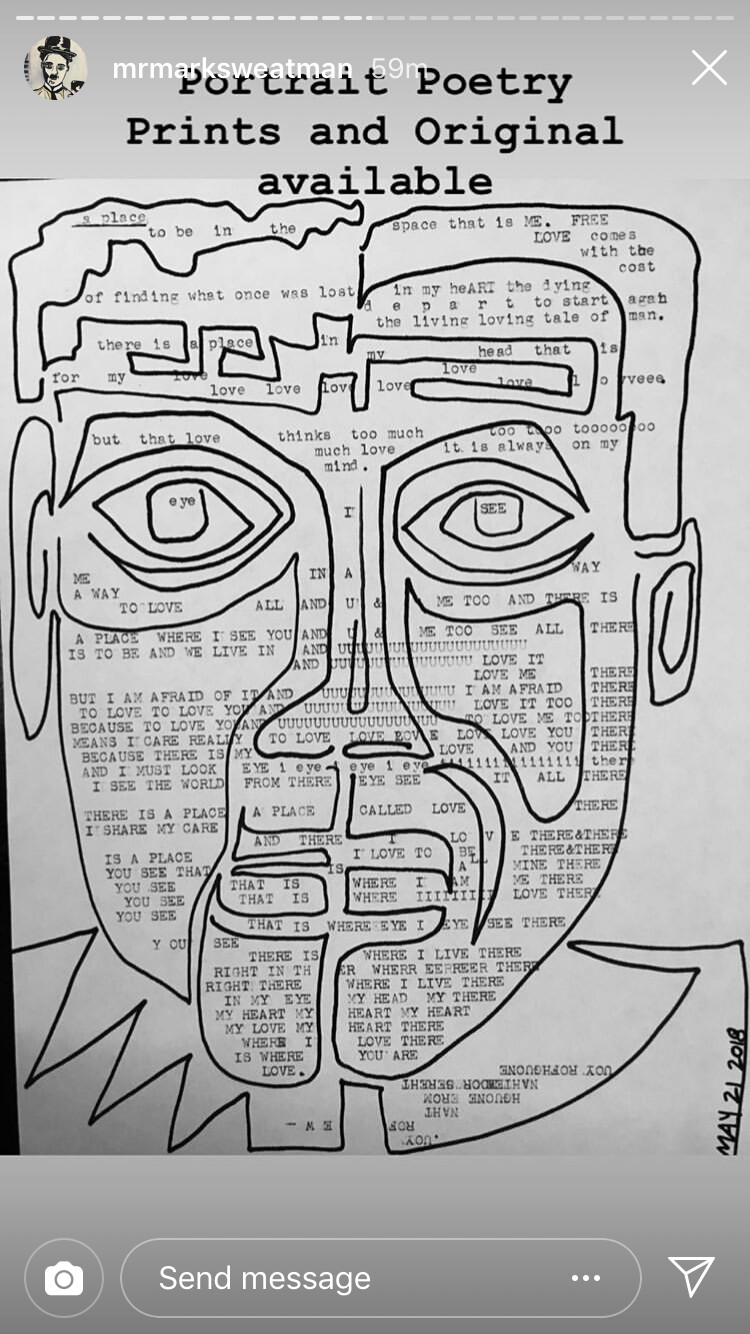 mrmarksweatman 59m
Portrait Poetry
Prints and Original
available
a place
to be in the
space that is ME. FREE
LOVE comes
with the
cost
of finding what once was lost
in my heART the dying
d e p a r t to start agah
the living loving tale of man.
there is a place in
my head that is
for my love
love love love love love love l o vveee
but that love thinks too much too tooo tooooooo
much love it is always on my
mind.
eye
I
SEE
ME IN A WAY
A WAY
TO LOVE ALL AND U & ME TOO AND THERE IS
A PLACE WHERE I SEE YOU AND U & ME TOO SEE ALL THERE
IS TO BE AND WE LIVE IN AND UUUUUUUUUUUUUUUUUUUUU
AND UUUUUUUUUUUUUUUU LOVE IT
LOVE ME THERE
BUT I AM AFRAID OF IT AND UUUUUUUUUUUUUUU I AM AFRAID THERE
TO LOVE TO LOVE YOU AND UUUUUUUUUUUUUUUUU LOVE IT TOO THERE
BECAUSE TO LOVE YOU AND UUUUUUUUUUUUUUUUUUU TO LOVE ME TOO THERE
MEANS I CARE REALLY TO LOVE LOVE LOVE LOVE YOU THERE
BECAUSE THERE IS MY LOVE AND YOU THERE
AND I MUST LOOK EYE i eye i eye i eye iiiiiiiiiiiiiiiii ther
I SEE THE WORLD FROM THERE EYE SEE IT ALL THERE
THERE IS A PLACE A PLACE CALLED LOVE THERE
I SHARE MY CARE
AND THERE I LO V E THERE&THERE
IS A PLACE I LOVE TO BE THERE&THERE
YOU SEE THAT IS ALL MINE THERE
YOU SEE THAT IS WHERE I AM ME THERE
YOU SEE THAT IS WHERE IIIIIIII LOVE THERE
YOU SEE
THAT IS WHERE EYE I EYE SEE THERE
Y OU SEE
THERE IS WHERE I LIVE THERE
RIGHT IN TH ER WHERR EERREER THERE
RIGHT THERE WHERE I LIVE THERE
IN MY EYE MY HEAD MY THERE
MY HEART MY HEART MY HEART
MY LOVE MY HEART THERE
WHERE I LOVE THERE
IS WHERE YOU ARE
LOVE.
MAY 21 2018
Send message